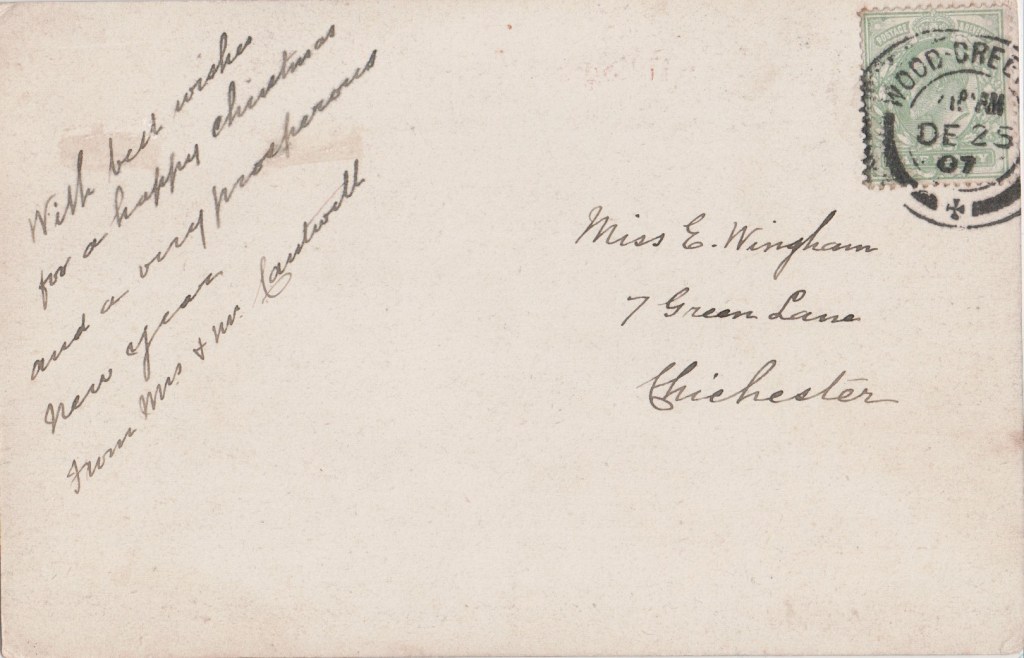 With best wishes
for a happy christmas
and a very prosperous
New year
From Mrs & Mr. Cantwell
Miss E. Wingham
7 Green Lane
Chichester
POSTAGE
WOOD-GREE
AM
DE 25
07